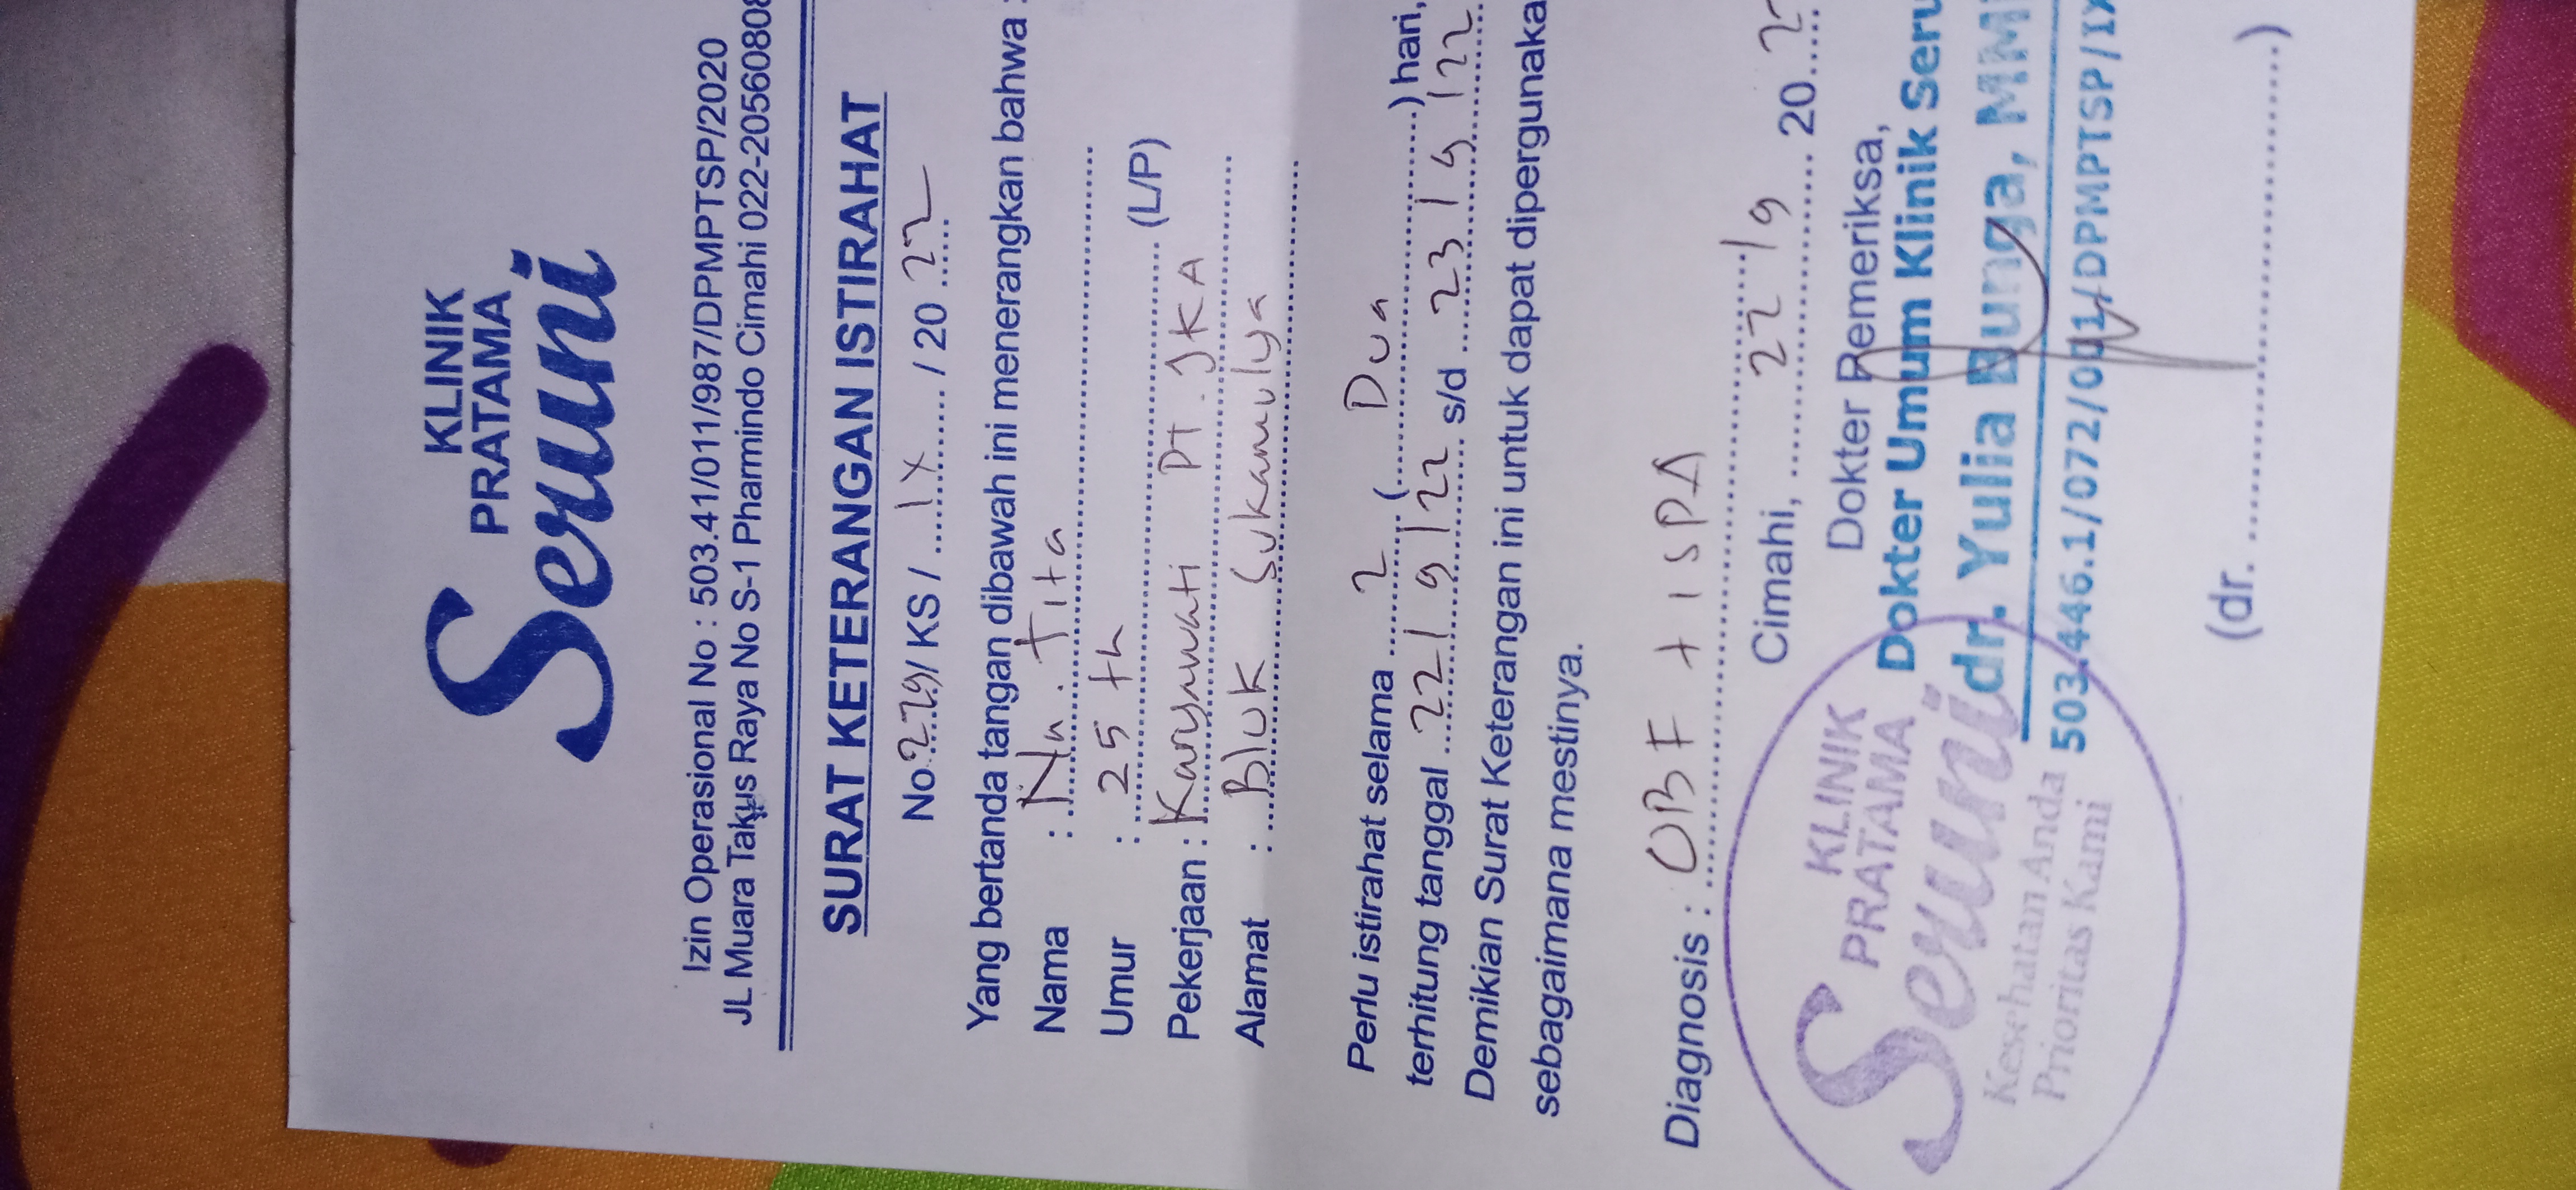 KLINIK
PRATAMA
Seruni
Izin Operasional No : 503.41/011/987/DPMPTSP/2020
JL Muara Takus Raya No S-1 Pharmindo Cimahi 022-20560808
SURAT KETERANGAN ISTIRAHAT
No 229/ KS / IX / 20 22
Yang bertanda tangan dibawah ini menerangkan bahwa :
Nama : Nn. Tita
Umur : 25 th (L/P)
Pekerjaan : Karyawati PT. JKA
Alamat : Blok Sukamulya
Perlu istirahat selama 2 ( Dua ) hari,
terhitung tanggal 22/9/22 s/d 23/9/22
Demikian Surat Keterangan ini untuk dapat dipergunaka
sebagaimana mestinya.
Diagnosis : OBF + ISPA
Cimahi, 22/9 20 2
Dokter Pemeriksa,
Dokter Umum Klinik Seru
dr. Yulia Bunga, MM
503.446.1/072/001/DPMPTSP/IX
(dr. )
KLINIK
PRATAMA
Seruni
Kesehatan Anda
Prioritas Kami